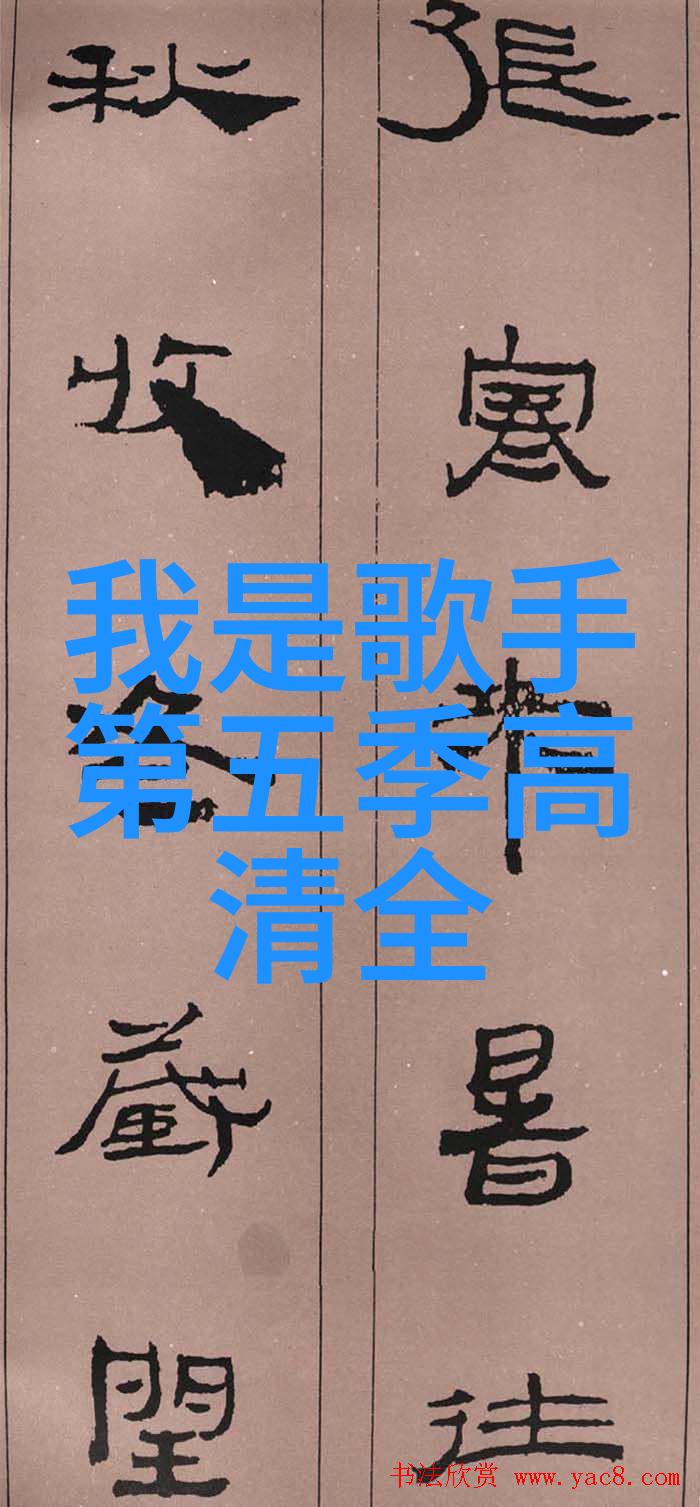 張寒來暑往
秋收冬藏閏
我是歌手
第五季高
清全
书法欣赏 www.yac8.com